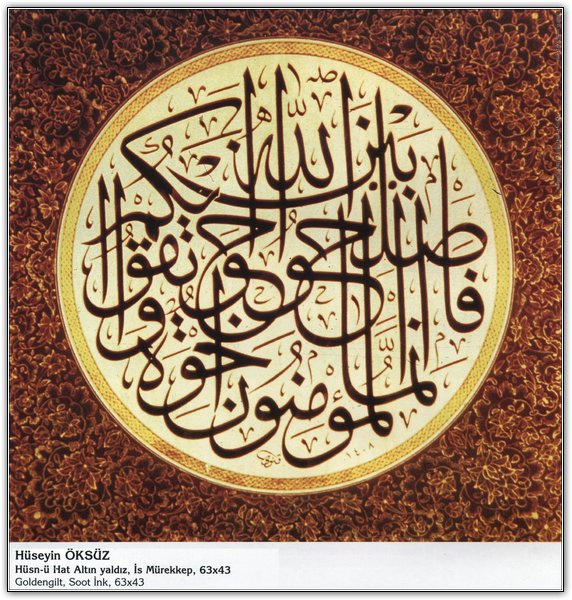 انما المؤمنون اخوة
فاصلحوا بين اخويكم
واتقوا الله
١٤٠٨
Hüseyin ÖKSÜZ
Hüsn-ü Hat Altın yaldız, İs Mürekkep, 63x43
Goldengilt, Soot İnk, 63x43